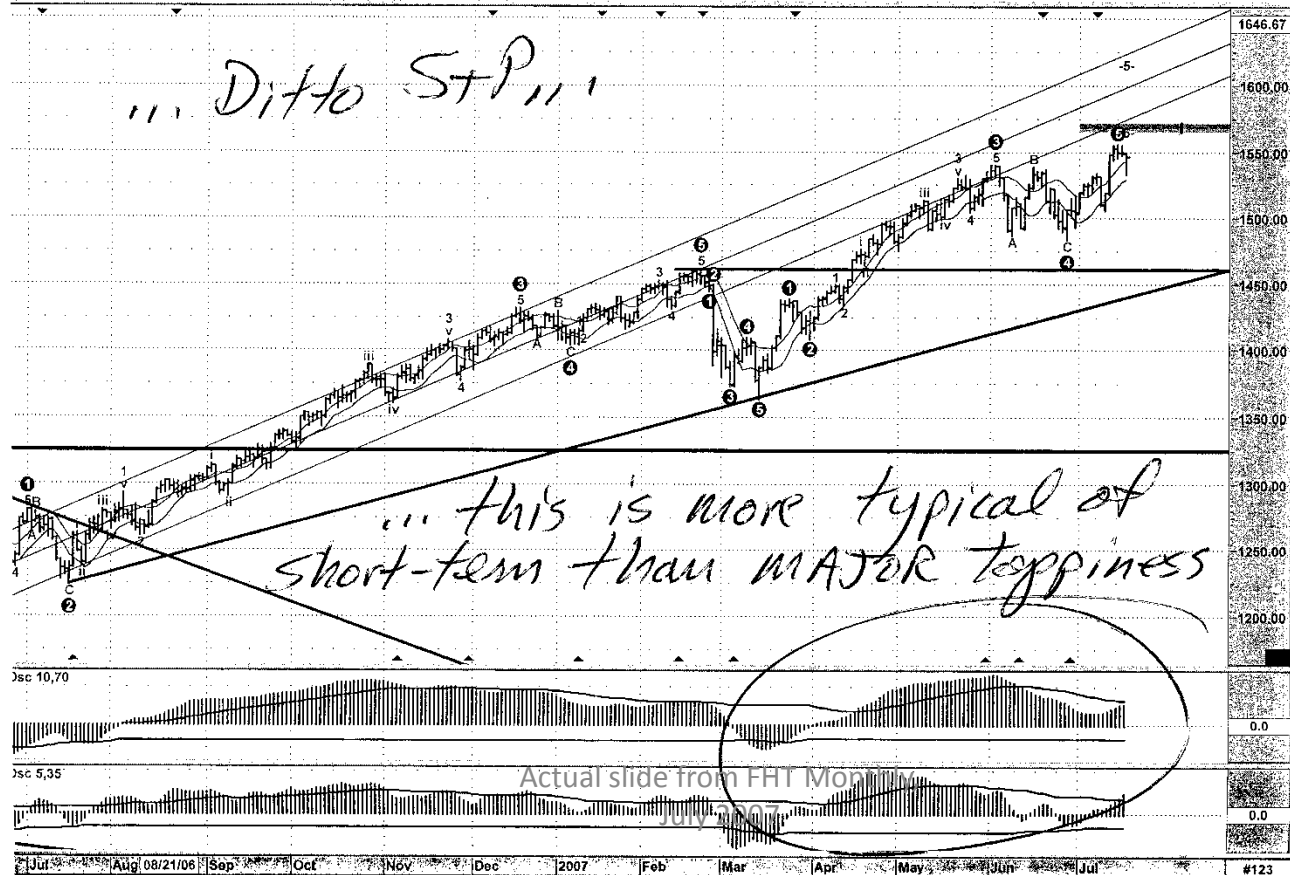 1646.67
... Ditto S+P...
-5-
1600.00
1550.00
1500.00
1450.00
1400.00
1350.00
1300.00
... this is more typical of
1250.00
short-term than MAJOR toppiness
1200.00
Osc 10,70
0.0
Osc 5,35
Actual slide from FHT Monthly
July 2007
0.0
Jul Aug 08/21/06 Sep Oct Nov Dec 2007 Feb Mar Apr May Jun Jul #123